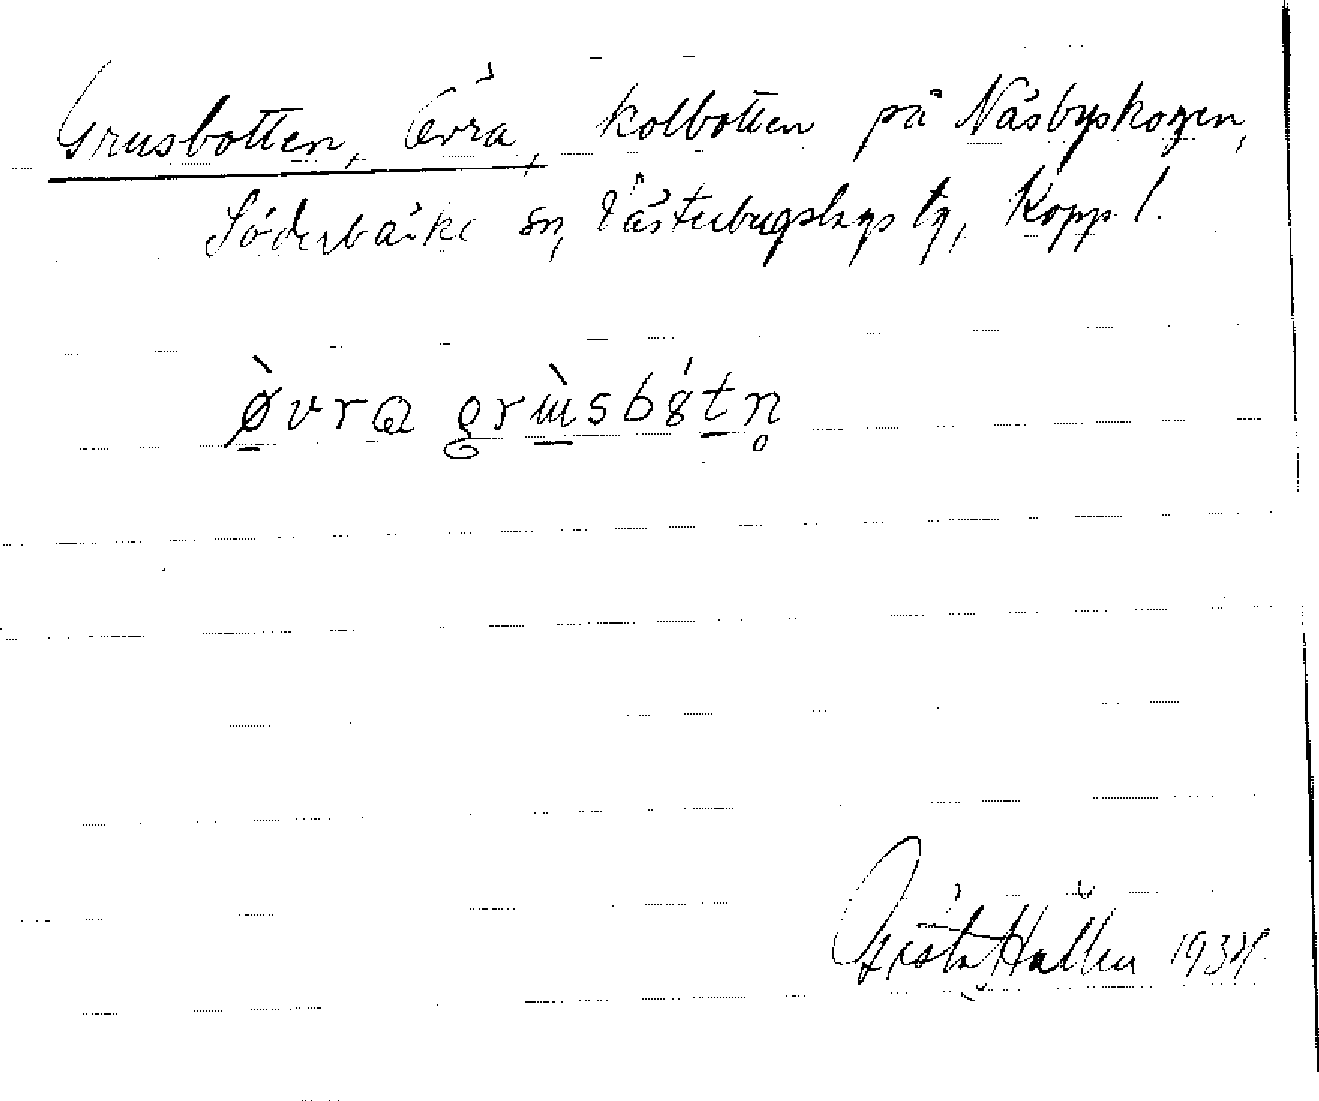 Grusbotten, Övra, kolbotten på Näsbyskogen,
Söderbärke sn, Västerbergslags tg, Kopp. l.
øvra grɯsbȣtn̥
Gösta Hallén 1934.